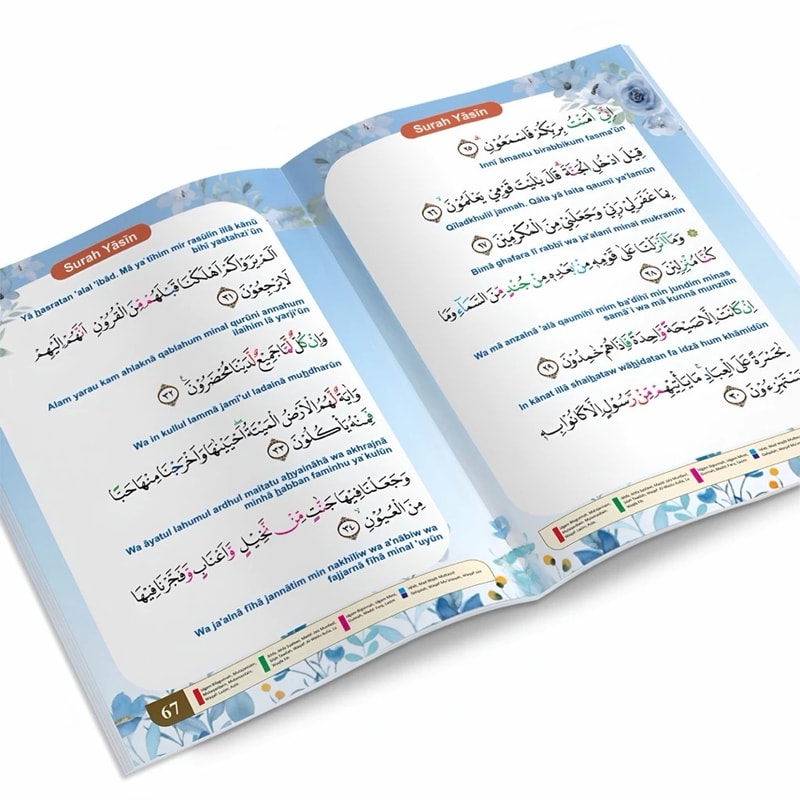 Surah Yāsīn
اِنِّيْٓ اٰمَنْتُ بِرَبِّكُمْ فَاسْمَعُوْنِۗ ٢٥
Innī āmantu birabbikum fasma'ūn
قِيْلَ ادْخُلِ الْجَنَّةَ ۗقَالَ يٰلَيْتَ قَوْمِيْ يَعْلَمُوْنَۙ ٢٦
Qīladkhulil jannah. Qāla yā laita qaumī ya'lamūn
بِمَا غَفَرَ لِيْ رَبِّيْ وَجَعَلَنِيْ مِنَ الْمُكْرَمِيْنَ ٢٧
Bimā ghafara lī rabbī wa ja'alanī minal mukramīn
۞ وَمَآ اَنْزَلْنَا عَلٰى قَوْمِهٖ مِنْۢ بَعْدِهٖ مِنْ جُنْدٍ مِّنَ السَّمَاۤءِ وَمَا
كُنَّا مُنْزِلِيْنَ ٢٨
Wa mā anzalnā 'alā qaumihī mim ba'dihī min jundim minas
samā'i wa mā kunnā munzilīn
اِنْ كَانَتْ اِلَّا صَيْحَةً وَّاحِدَةً فَاِذَا هُمْ خٰمِدُوْنَ ٢٩
In kānat illā shaiḥataw wāḥidatan fa idzā hum khāmidūn
يٰحَسْرَةً عَلَى الْعِبَادِۚ مَا يَأْتِيْهِمْ مِّنْ رَّسُوْلٍ اِلَّا كَانُوْا بِهٖ
يَسْتَهْزِءُوْنَ ٣٠
Surah Yāsīn
Yā ḥasratan 'alal 'ibād. Mā ya'tihim mir rasūlin illā kānū
bihī yastahzi'ūn
اَلَمْ يَرَوْا كَمْ اَهْلَكْنَا قَبْلَهُمْ مِّنَ الْقُرُوْنِ اَنَّهُمْ اِلَيْهِمْ
لَا يَرْجِعُوْنَ ٣١
Alam yarau kam ahlaknā qablahum minal qurūni annahum
ilaihim lā yarji'ūn
وَاِنْ كُلٌّ لَّمَّا جَمِيْعٌ لَّدَيْنَا مُحْضَرُوْنَ ٣٢
Wa in kullul lammā jamī'ul ladainā muḥdharūn
وَاٰيَةٌ لَّهُمُ الْاَرْضُ الْمَيْتَةُ ۖاَحْيَيْنٰهَا وَاَخْرَجْنَا مِنْهَا حَبًّا
فَمِنْهُ يَأْكُلُوْنَ ٣٣
Wa āyatul lahumul ardhul maitatu aḥyaināhā wa akhrajnā
minhā ḥabban faminhu ya'kulūn
وَجَعَلْنَا فِيْهَا جَنّٰتٍ مِّنْ نَّخِيْلٍ وَّاَعْنَابٍ وَّفَجَّرْنَا فِيْهَا
مِنَ الْعُيُوْنِ ٣٤
Wa ja'alnā fīhā jannātim min nakhīliw wa a'nābiw wa
fajjarnā fīhā minal 'uyūn
67